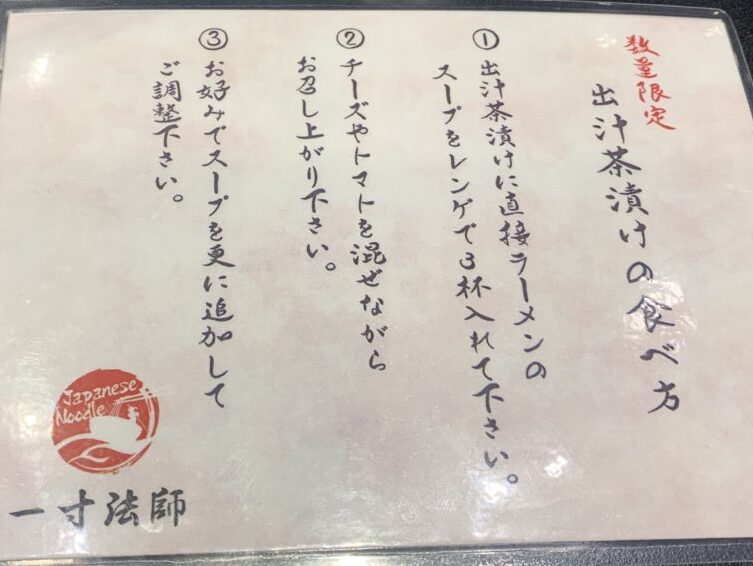 数量限定
出汁茶漬けの食べ方
①出汁茶漬けに直接ラーメンの
スープをレンゲで3杯入れて下さい。
②チーズやトマトを混ぜながら
お召し上がり下さい。
③お好みでスープを更に追加して
ご調整下さい。
Japanese
Noodle
一寸法師